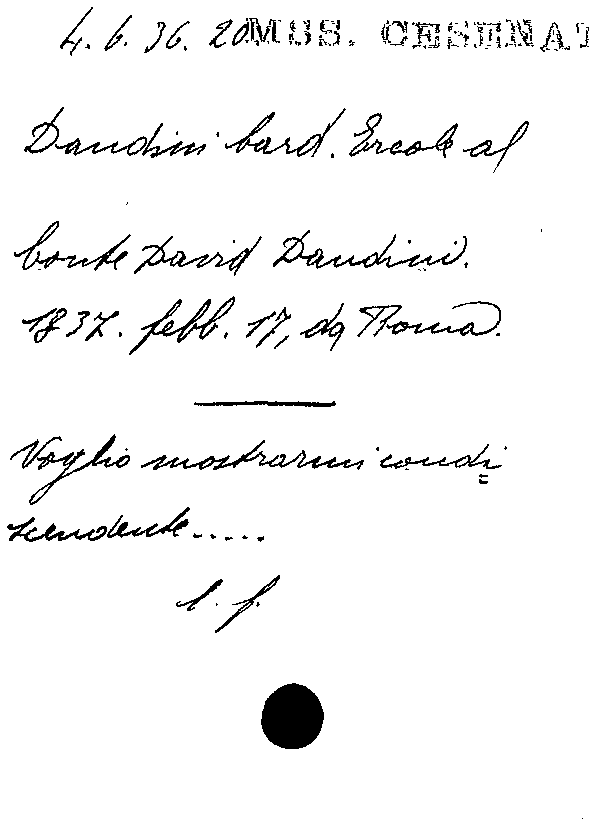 4. 6. 36. 20 MSS. CESENAT
Dandini Card. Ercole al
Conte David Dandini.
1837. febb. 17, da Roma.
Voglio mostrarmi condi
scendente.....
l. f.